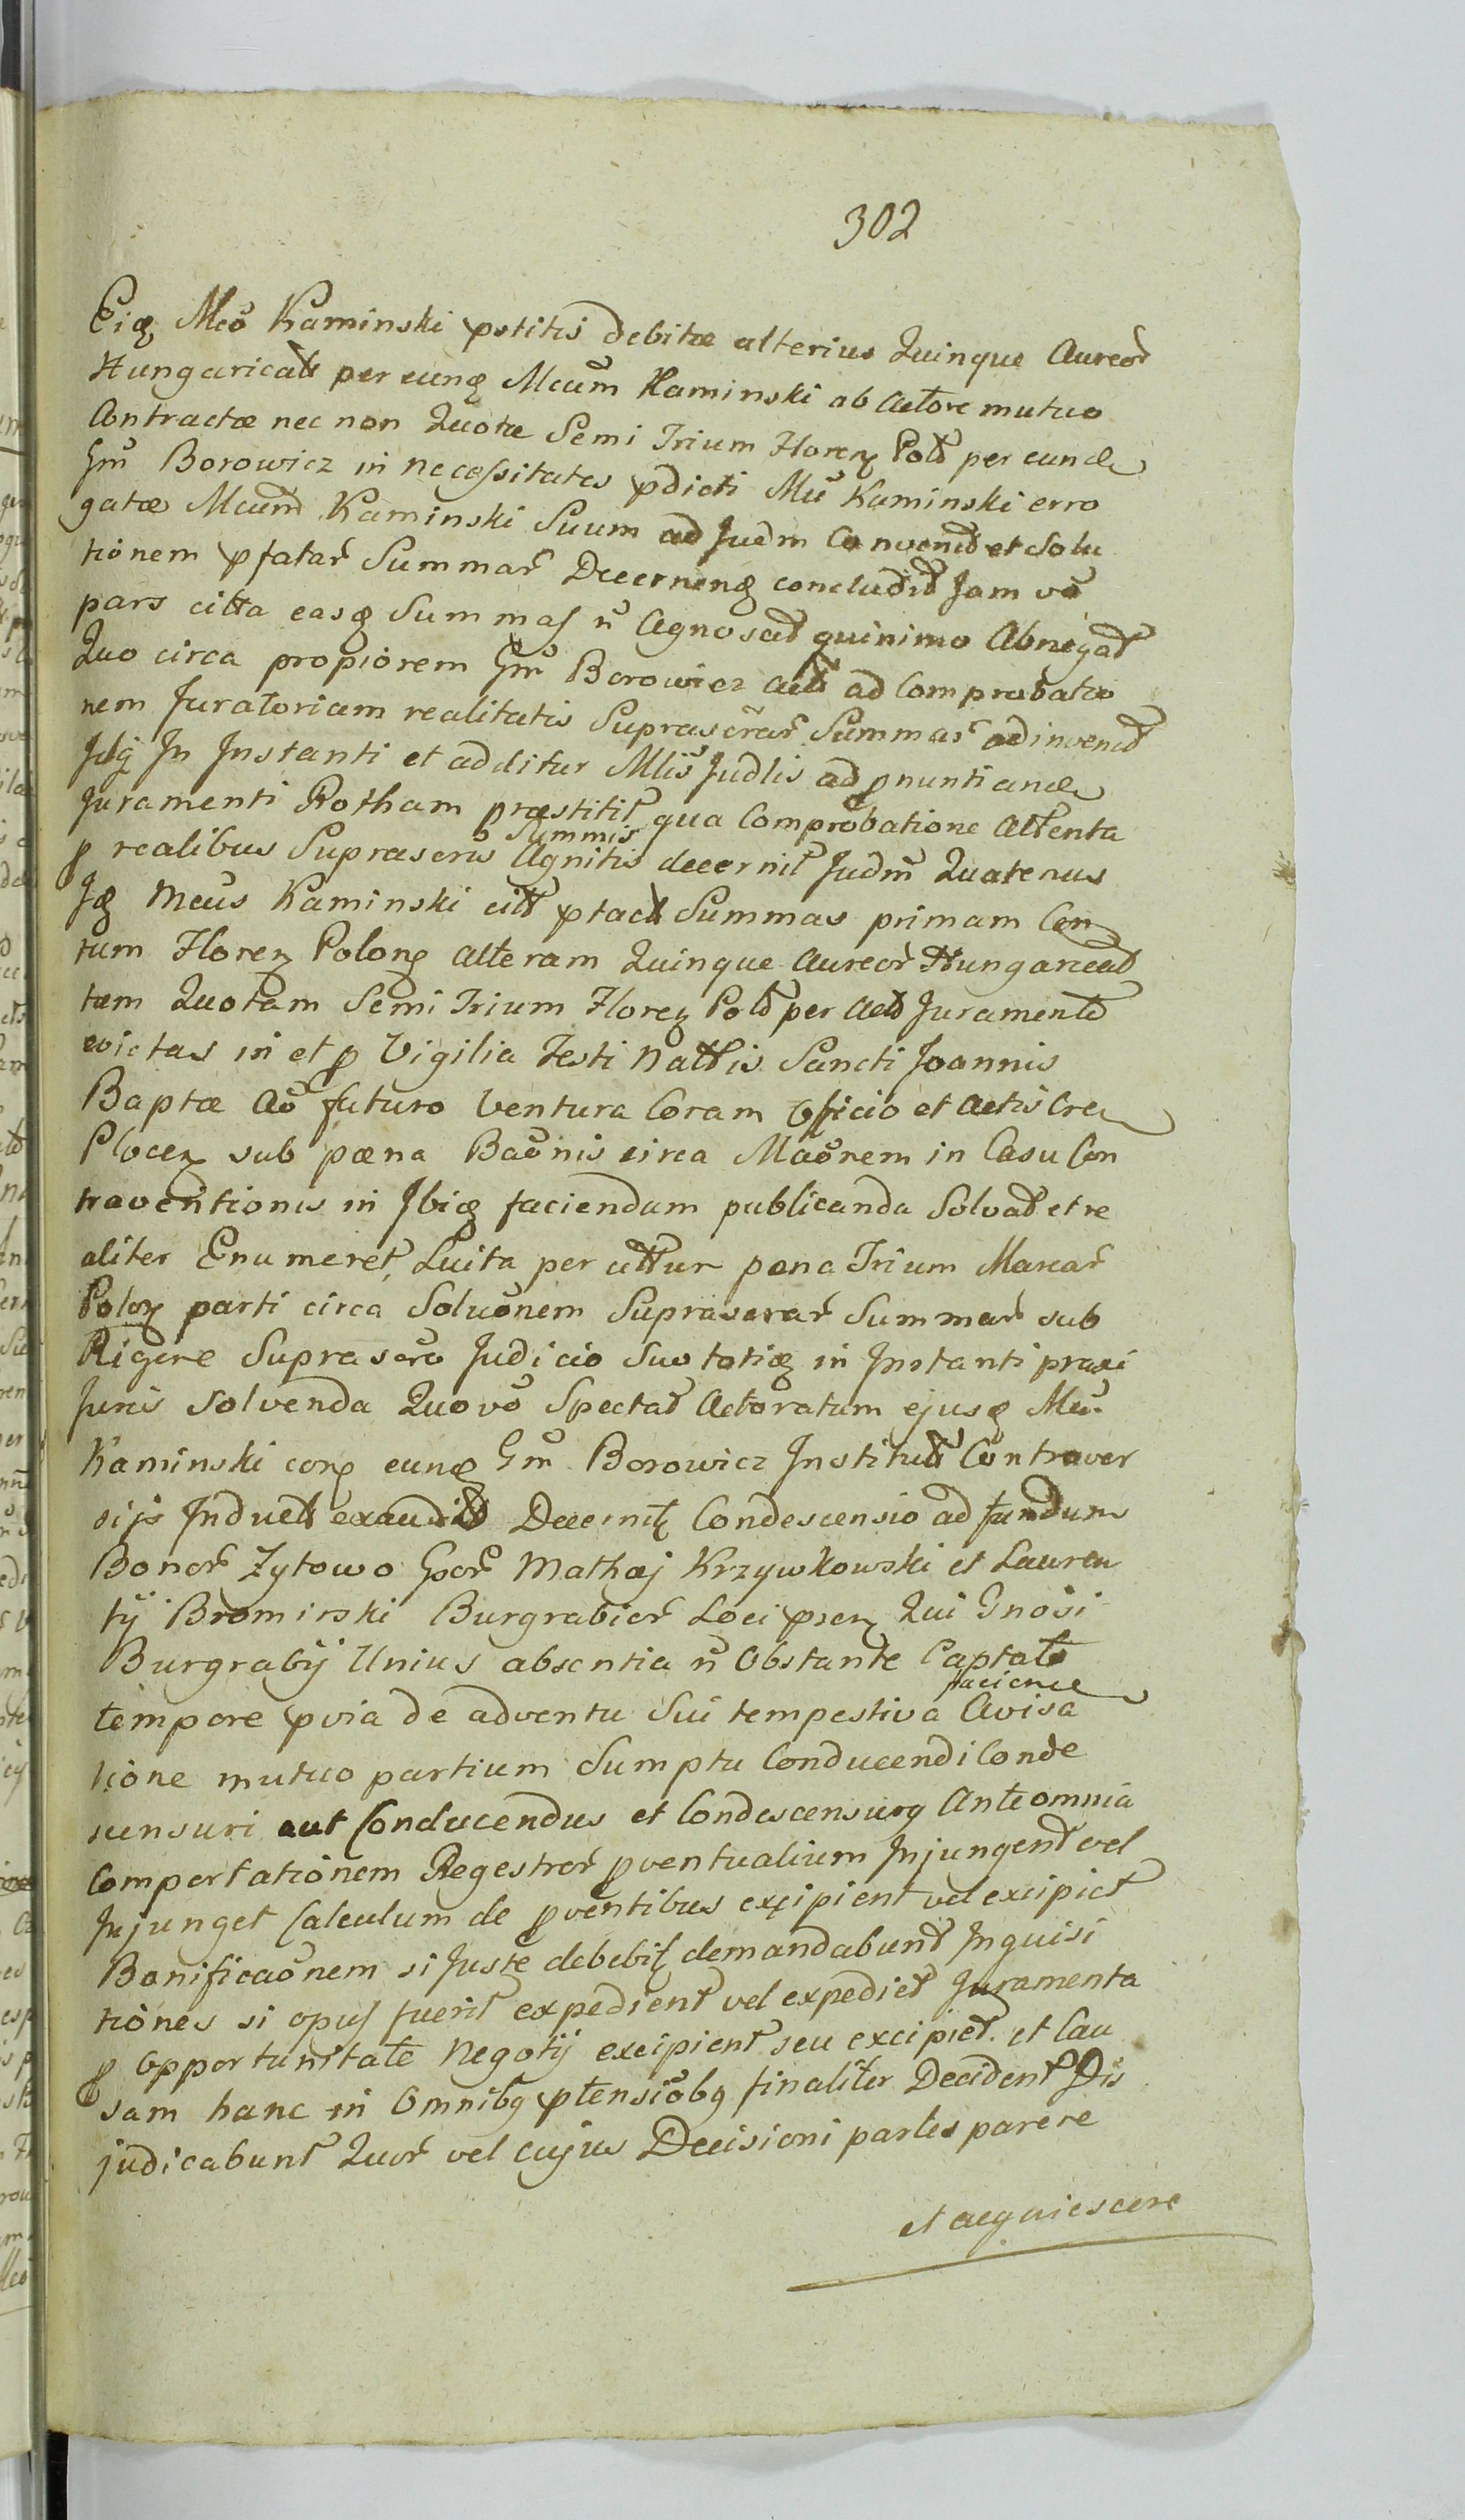 302
Eiq Mcō Kaminski pstitis debitæ alterius Quinque Aureor
Hungaricalt per eunq Mcum Kaminski ab Actore mutuo
Contractæ nec non Quotæ Semi Trium Floren Pold per eund
Gm Borowicz in necessitates pdicti Mu Kaminski erro
gatæ Mcum Kaminski Suum ad Judm Convenit et Solu
tionem pfatar Summar Decernenq concludit Jam vō
pars citta easq Summas n Agnoscat quinimo Abnegat
Quo circa propiorem Gm Borowicz Actt ad Comprobatio
nem Juratoriam realitatis Suprascrar Summar adinvenit
Idq In Instanti et additur Mlis Judlis ad pnuntiand
Juramenti Rotham præstitit qua Comprobatione Attenta
p realibus Suprascris Summis Agnitis decernit Judm Quatenus
Iq Mcus Kaminski citt ptact Summas primam Cen
tum Floren Polonq Alteram Quinque Aureor Hungaricalt
tam Quotam Semi Trium Floren Pold per Actt Juramento
evictas in et p Vigilia Festi Nattis Sancti Joannis
Baptæ Aō futuro Ventura Coram Officio et Actis Cre
Plocen sub pæna Baōnis circa Maōnem in Casu Con
traventionis in Ibiq faciendam publicanda Solvat et re
aliter Enumeret, Luita per cittur pona Trium Marcar
Polon parti circa Soluōnem Suprascrar Summar sub
Rigore Suprascro Judicio Suo totiq in Instanti praxi
Juris solvenda Quo vō Spectat Actoratum ejusq Mu
Kaminski conq eunq Gm Borowicz Institutt Controver
sijs Inductt exauditt Decernit Condescensio ad fundum
Bonor Zytowo Gor Mathæj Krzywkowski et Lauren
tij Bromirski Burgrabior Loci psen Qui Gnosi
Burgrabij Unius absentia n Obstante Captato
tempore pvia de adventu Sui tempestiva faciend Avisa
tione mutuo partium Sumptu Conducendi Conde
scensuri aut Conducendus et Condescensurq Ante omnia
Comportationem Regestror pventualium Injungent vel
Injunget Calculum de pventibus excipient vel excipiet
Bonificaōnem si Juste debebit demandabunt Inquisi
tiones si opus fuerit expedient vel expediet Juramenta
p Opportunitate Negotij excipient seu excipiet et Cau
sam hanc in Omnibq ptensiōbq finaliter Decident Dis
judicabunt Quor vel cujus Decisioni partes parere
et acquiescere